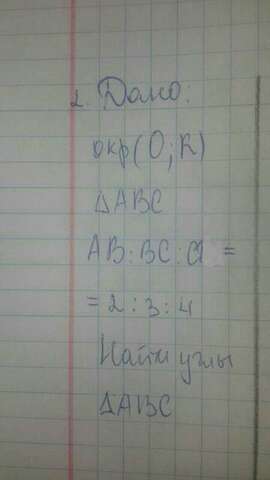 2. Дано:
окр(O; R)
ΔABC
AB : BC : CA =
= 2 : 3 : 4
Найти углы
ΔABC